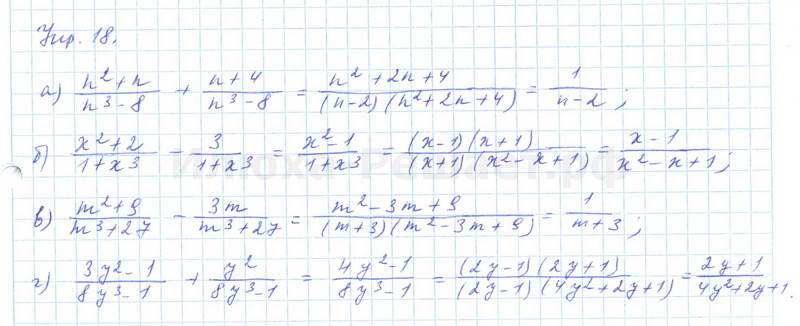 Упр. 18.
а) (n²+n)/(n³-8) + (n+4)/(n³-8) = (n²+2n+4)/((n-2)(n²+2n+4)) = 1/(n-2);
б) (x²+2)/(1+x³) - 3/(1+x³) = (x²-1)/(1+x³) = ((x-1)(x+1))/((x+1)(x²-x+1)) = (x-1)/(x²-x+1);
в) (m²+9)/(m³+27) - 3m/(m³+27) = (m²-3m+9)/((m+3)(m²-3m+9)) = 1/(m+3);
г) (3y²-1)/(8y³-1) + y²/(8y³-1) = (4y²-1)/(8y³-1) = ((2y-1)(2y+1))/((2y-1)(4y²+2y+1)) = (2y+1)/(4y²+2y+1).